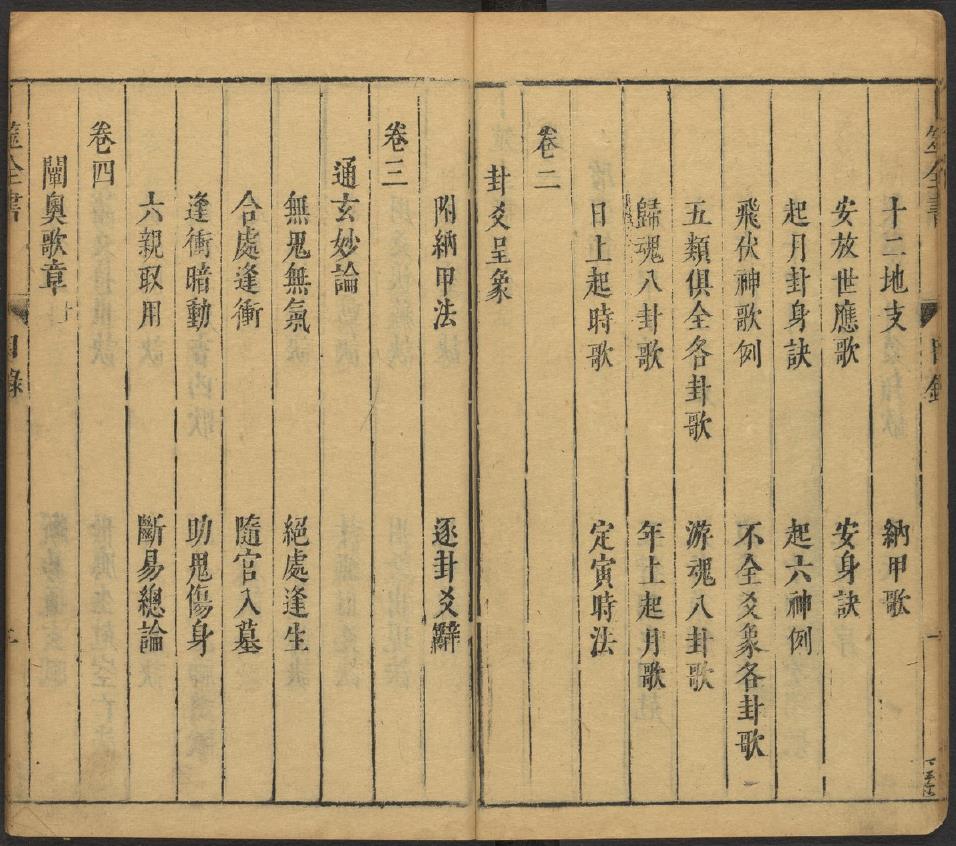 十二地支 納甲歌
安放世應歌 安身訣
起月卦身訣 起六神例
飛伏神歌例 不全爻象各卦歌
五類俱全各卦歌 游魂八卦歌
歸魂八卦歌 年上起月歌
日上起時歌 定寅時法
卷二
卦爻呈象
附納甲法 逐卦爻辭
卷三
通玄妙論
無鬼無氣 絕處逢生
合處逢衝 隨官入墓
逢衝暗動 助鬼傷身
六親取用 斷易總論
卷四
闡奧歌章
全書 目錄